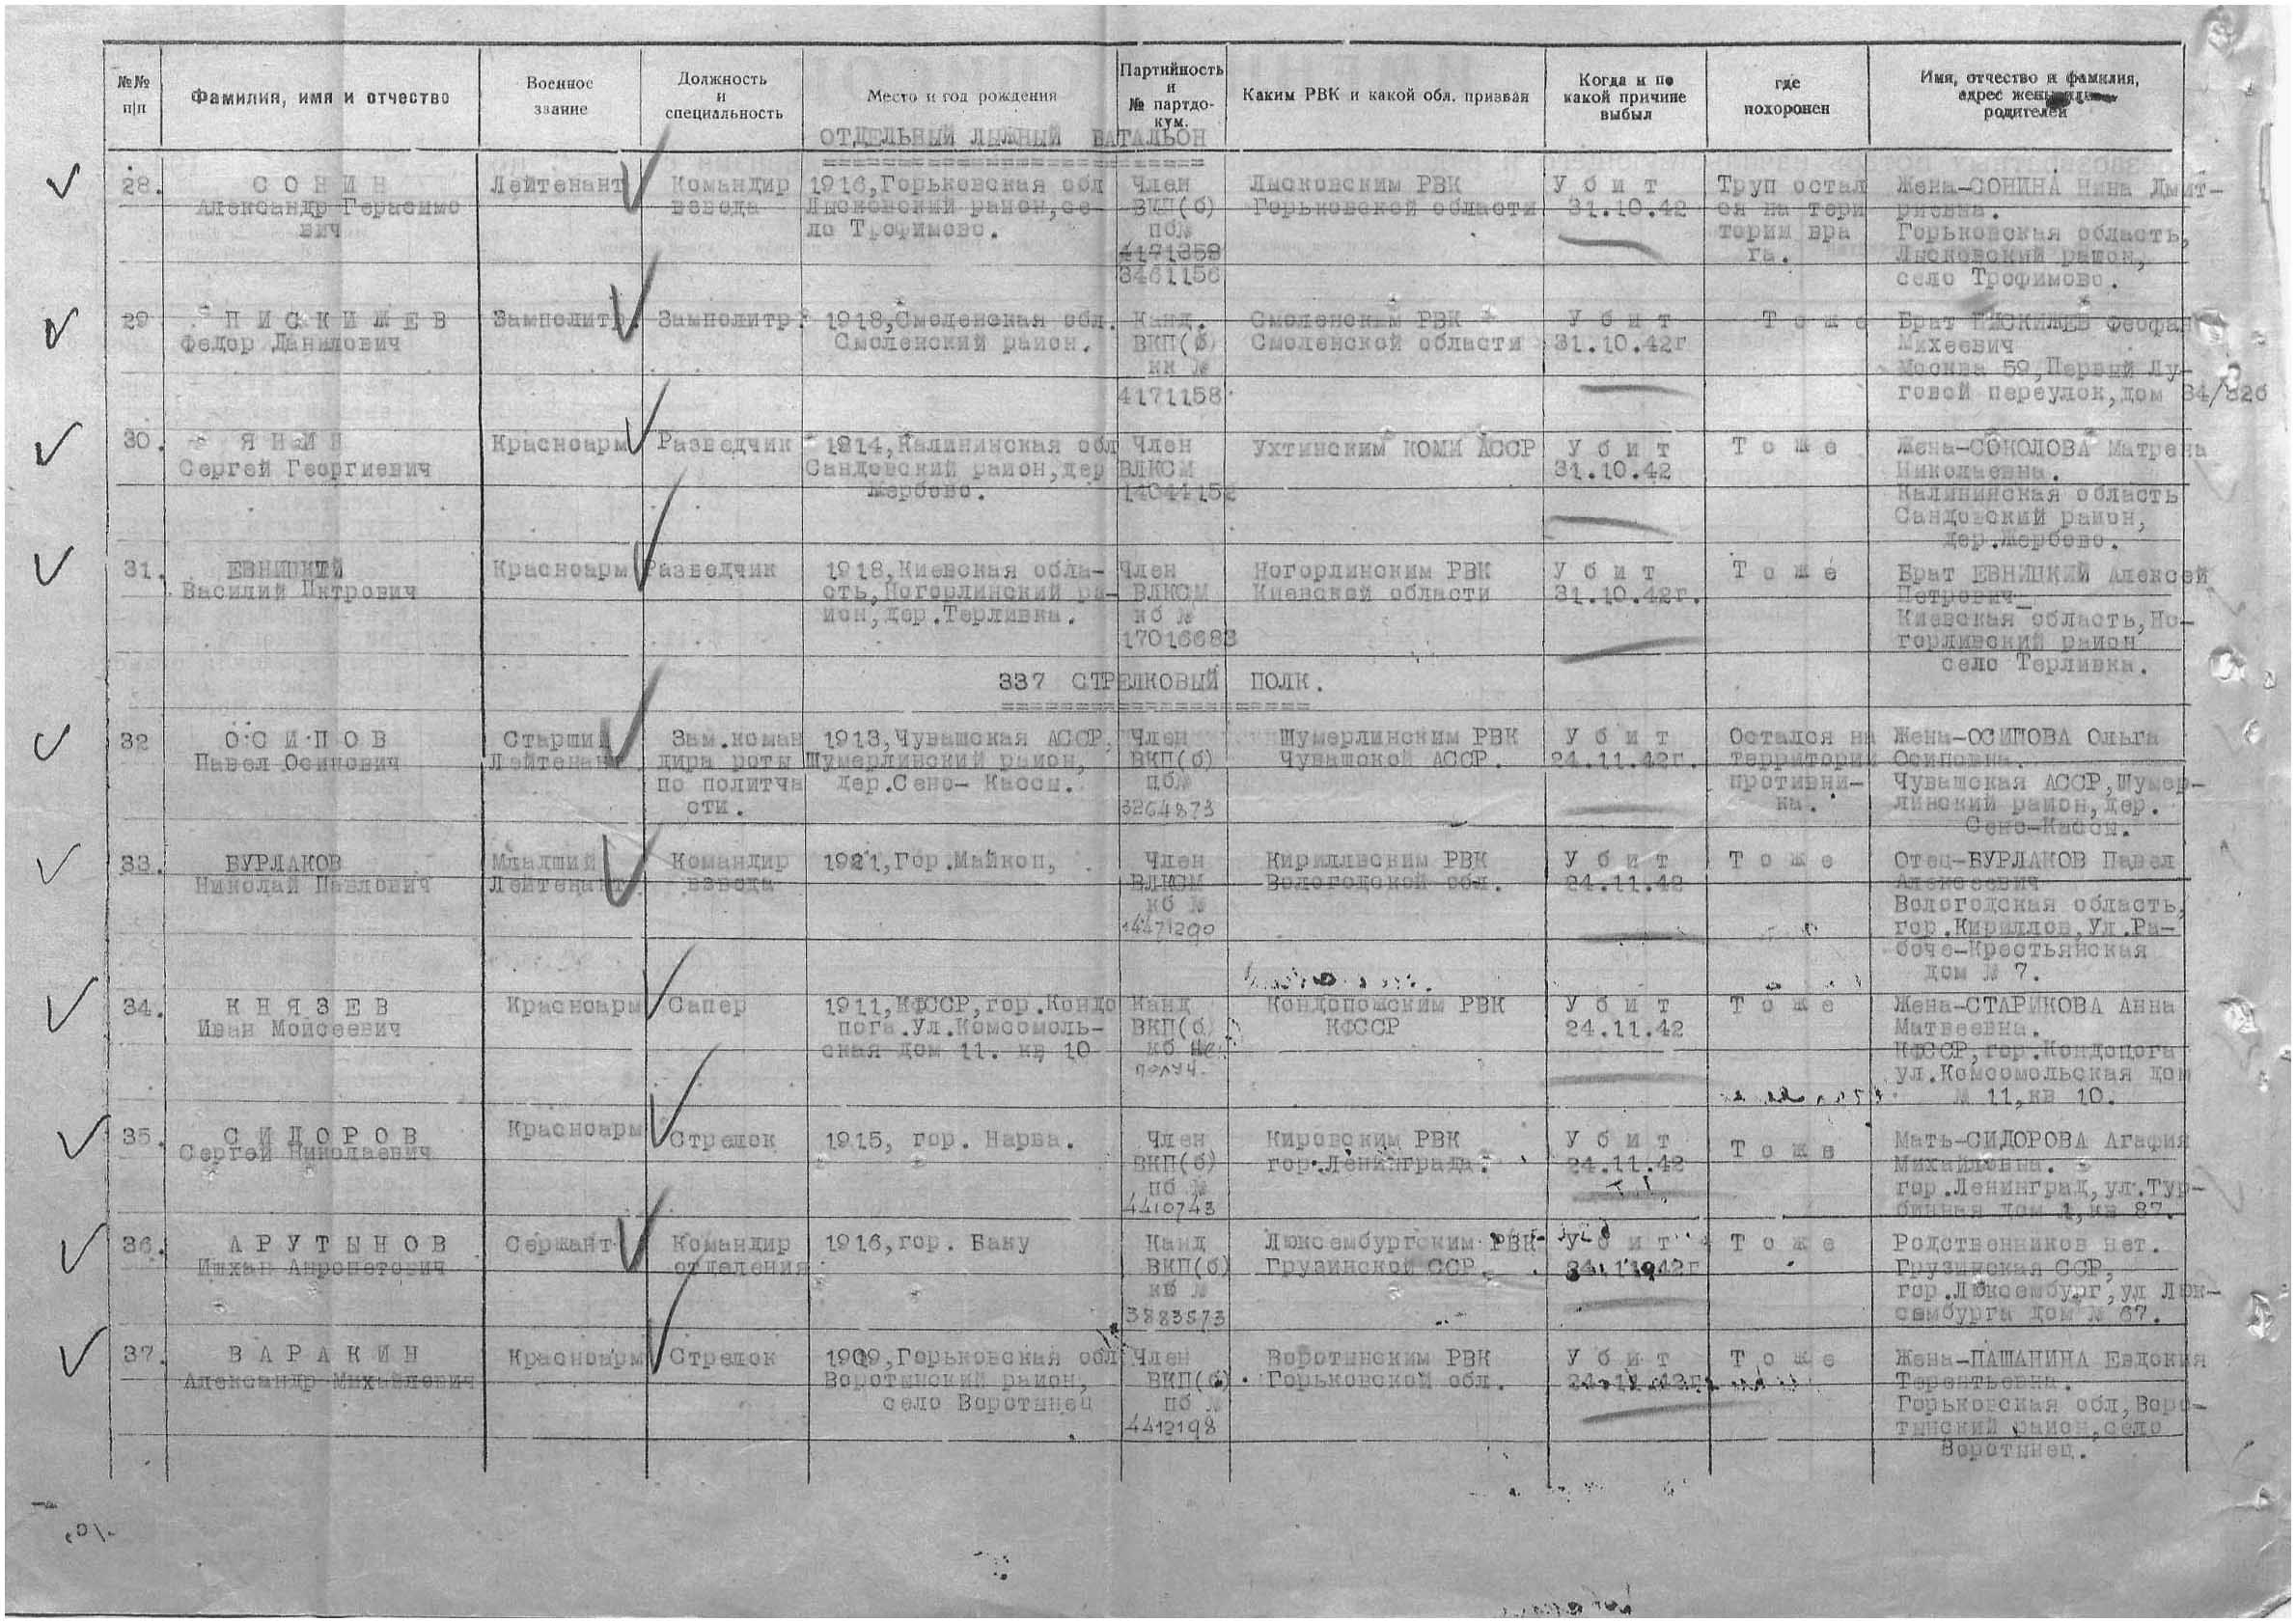 №№ п/п
Фамилия, имя и отчество
Военное звание
Должность и специальность
Место и год рождения
Партийность и № партдо-кум.
Каким РВК и какой обл. призван
Когда и по какой причине выбыл
где похоронен
Имя, отчество и фамилия, адрес жены или родителей
ОТДЕЛЬНЫЙ ЛЫЖНЫЙ БАТАЛЬОН
28.
С О Н И Н
Александр Герасимо
вич
Лейтенант
Командир
взвода
1916,Горьковская обл
Лысковский район,се-
ло Трофимово.
Член
ВКП(б)
пб№
4171358
3461156
Лысковским РВК
Горьковской области
У б и т
31.10.42
Труп остал
ся на тери
тории вра
га.
Жена-СОНИНА Нина Дмит-
риевна.
Горьковская область,
Лысковский район,
село Трофимово.
29
П И С К И Ж Е В
Федор Данилович
Замполитр.
Замполитр.
1918,Смоленская обл.
Смоленский район.
Канд.
ВКП(б)
кк №
4171158
Смоленским РВК
Смоленской области
У б и т
31.10.42г
Т о ж е
Брат ПИСКИЖЕВ Феофан
Михеевич
Москва 59,Первый Лу-
говой переулок,дом 34/32б
30.
Я Н И Н
Сергей Георгиевич
Красноарм
Разведчик
1914,Калининская обл
Сандовский район,дер
Жербово.
Член
ВЛКСМ
14044152
Ухтинским КОМИ АССР
У б и т
31.10.42
Т о ж е
Жена-СОКОЛОВА Матрена
Николаевна.
Калининская область
Сандовский район,
дер.Жербово.
31.
ЕВНИЦКИЙ
Василий Пктрович
Красноарм
Разведчик
1918,Киевская обла-
сть,Ногорлинский ра-
ион,дер.Терливка.
Член
ВЛКСМ
кб №
17016683
Ногорлинским РВК
Киевской области
У б и т
31.10.42г.
Т о ж е
Брат ЕВНИЦКИЙ Алексей
Петрович
Киевская область,Но-
горлинский район
село Терливка.
337 СТРЕЛКОВЫЙ ПОЛК.
32
О С И П О В
Павел Осипович
Старший
Лейтенант
Зам.коман
дира роты
по политча
сти.
1913,Чувашская АССР,
Шумерлинский район,
дер.Сено- Кассы.
Член
ВКП(б)
пб№
3264873
Шумерлинским РВК
Чувашской АССР.
У б и т
24.11.42г.
Остался на
территории
противни-
ка.
Жена-ОСИПОВА Ольга
Осиповна.
Чувашская АССР,Шумер-
линский район,дер.
Сено-Кассы.
33.
БУРЛАКОВ
Николай Павлович
Младший
Лейтенант.
Командир
взвода
1921,Гор.Майкоп,
Член
ВЛКСМ
кб №
14471290
Кирилвским РВК
Вологодской обл.
У б и т
24.11.42
Т о ж е
Отец-БУРЛАКОВ Павел
Алексеевич
Вологодская область,
гор.Кириллов,Ул.Ра-
боче-Крестьянская
дом № 7.
34.
К Н Я З Е В
Иван Моисеевич
Красноарм
Сапер
1911,КФССР,гор.Кондо
пога.Ул.Комсомоль-
ская дом 11. кв 10
Канд
ВКП(б)
кб Не
получ.
Кондопожским РВК
КФССР
У б и т
24.11.42
Т о ж е
Жена-СТАРИКОВА Анна
Матвеевна.
КФССР,гор.Кондопога
ул.Комсомольская дом
№ 11,кв 10.
35.
С И Д О Р О В
Сергей Николаевич
Красноарм
Стрелок
1915, гор. Нарва.
Член
ВКП(б)
пб №
4410743
Кировским РВК
гор.Ленинграда.
У б и т
24.11.42
Т о ж е
Мать-СИДОРОВА Агафия
Михайловна.
гор.Ленинград,ул.Тур-
бинная дом 1,кв 87.
36.
А Р У Т Ы Н О В
Ишхан Айропетович
Сержант
Командир
отделения
1916,гор. Баку
Канд
ВКП(б)
кб №
3883573
Люксембургским РВК
Грузинской ССР.
У б и т
24.11.42г
Т о ж е
Родственников нет.
Грузинская ССР,
гор.Люксембург,ул Люк-
сембурга дом № 67.
37.
В А Р А К И Н
Александр Михайлович
Красноарм
Стрелок
1909,Горьковская обл
Воротынский район,
село Воротынец
Член
ВКП(б)
пб №
4412198
Воротынским РВК
Горьковской обл.
У б и т
24.11.42г
Т о ж е
Жена-ПАШАНИНА Евдокия
Терентьевна.
Горьковская обл,Воро-
тынский район,село
Воротынец.